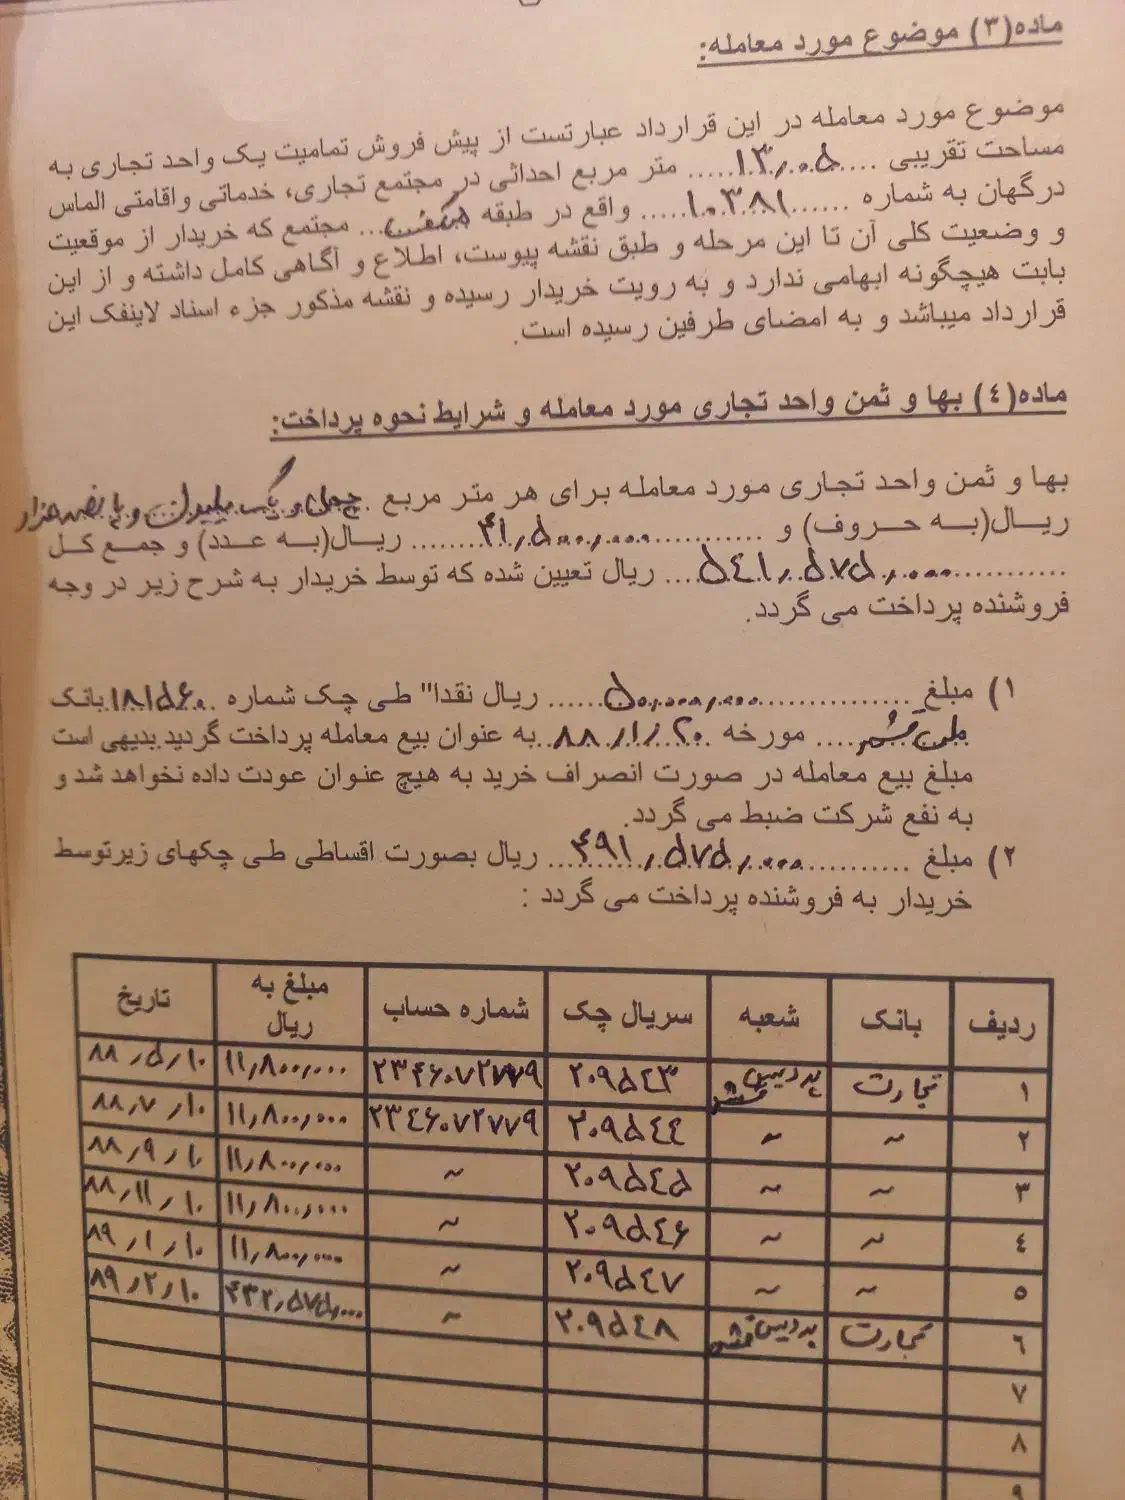 ماده(۳) موضوع مورد معامله:
موضوع مورد معامله در این قرارداد عبارتست از پیش فروش تمامیت یک واحد تجاری به
مساحت تقریبی ....۱۳/۰۵..... متر مربع احداثی در مجتمع تجاری، خدماتی واقامتی الماس
درگهان به شماره ......۱۰۳۸۱..... واقع در طبقه همکف... مجتمع که خریدار از موقعیت
و وضعیت کلی آن تا این مرحله و طبق نقشه پیوست، اطلاع و آگاهی کامل داشته و از این
بابت هیچگونه ابهامی ندارد و به رویت خریدار رسیده و نقشه مذکور جزء اسناد لاینفک این
قرارداد میباشد و به امضای طرفین رسیده است.
ماده(٤) بها و ثمن واحد تجاری مورد معامله و شرایط نحوه پرداخت:
بها و ثمن واحد تجاری مورد معامله برای هر متر مربع چهل و یک میلیون و پانصد هزار
ریال(به حروف) و ............۴۱/۵۰۰/۰۰۰........ ریال(به عدد) و جمع کل
............۵٤۱/۵۷۵/۰۰۰.... ریال تعیین شده که توسط خریدار به شرح زیر در وجه
فروشنده پرداخت می گردد.
۱) مبلغ ................۵۰/۰۰۰/۰۰۰...... ریال نقدا" طی چک شماره ۱۸۱۵۶۰ بانک
ملت .... مورخه ۸۸/۱/۲۰ به عنوان بیع معامله پرداخت گردید بدیهی است
مبلغ بیع معامله در صورت انصراف خرید به هیچ عنوان عودت داده نخواهد شد و
به نفع شرکت ضبط می گردد.
۲) مبلغ ............۴۹۱/۵۷۵/۰۰۰.... ریال بصورت اقساطی طی چکهای زیرتوسط
خریدار به فروشنده پرداخت می گردد :
ردیف بانک شعبه سریال چک شماره حساب مبلغ به ریال تاریخ
۱ تجارت پردیس ۲۰۹۵٤۳ ۲۳۴۶۰۷۲۷۷۹ ۱۱/۸۰۰/۰۰۰ ۸۸/۵/۱۰
۲ ~ ~ ۲۰۹۵٤٤ ۲۳٤۶۰۷۲۷۷۹ ۱۱/۸۰۰/۰۰۰ ۸۸/۷/۱۰
۳ ~ ~ ۲۰۹۵٤۵ ~ ۱۱/۸۰۰/۰۰۰ ۸۸/۹/۱۰
٤ ~ ~ ۲۰۹۵٤۶ ~ ۱۱/۸۰۰/۰۰۰ ۸۸/۱۱/۱۰
۵ ~ ~ ۲۰۹۵٤۷ ~ ۱۱/۸۰۰/۰۰۰ ۸۹/۱/۱۰
۶ تجارت پردیس ۲۰۹۵٤۸ ~ ۴۳۲/۵۷۵/۰۰۰ ۸۹/۲/۱۰
۷
۸
۹